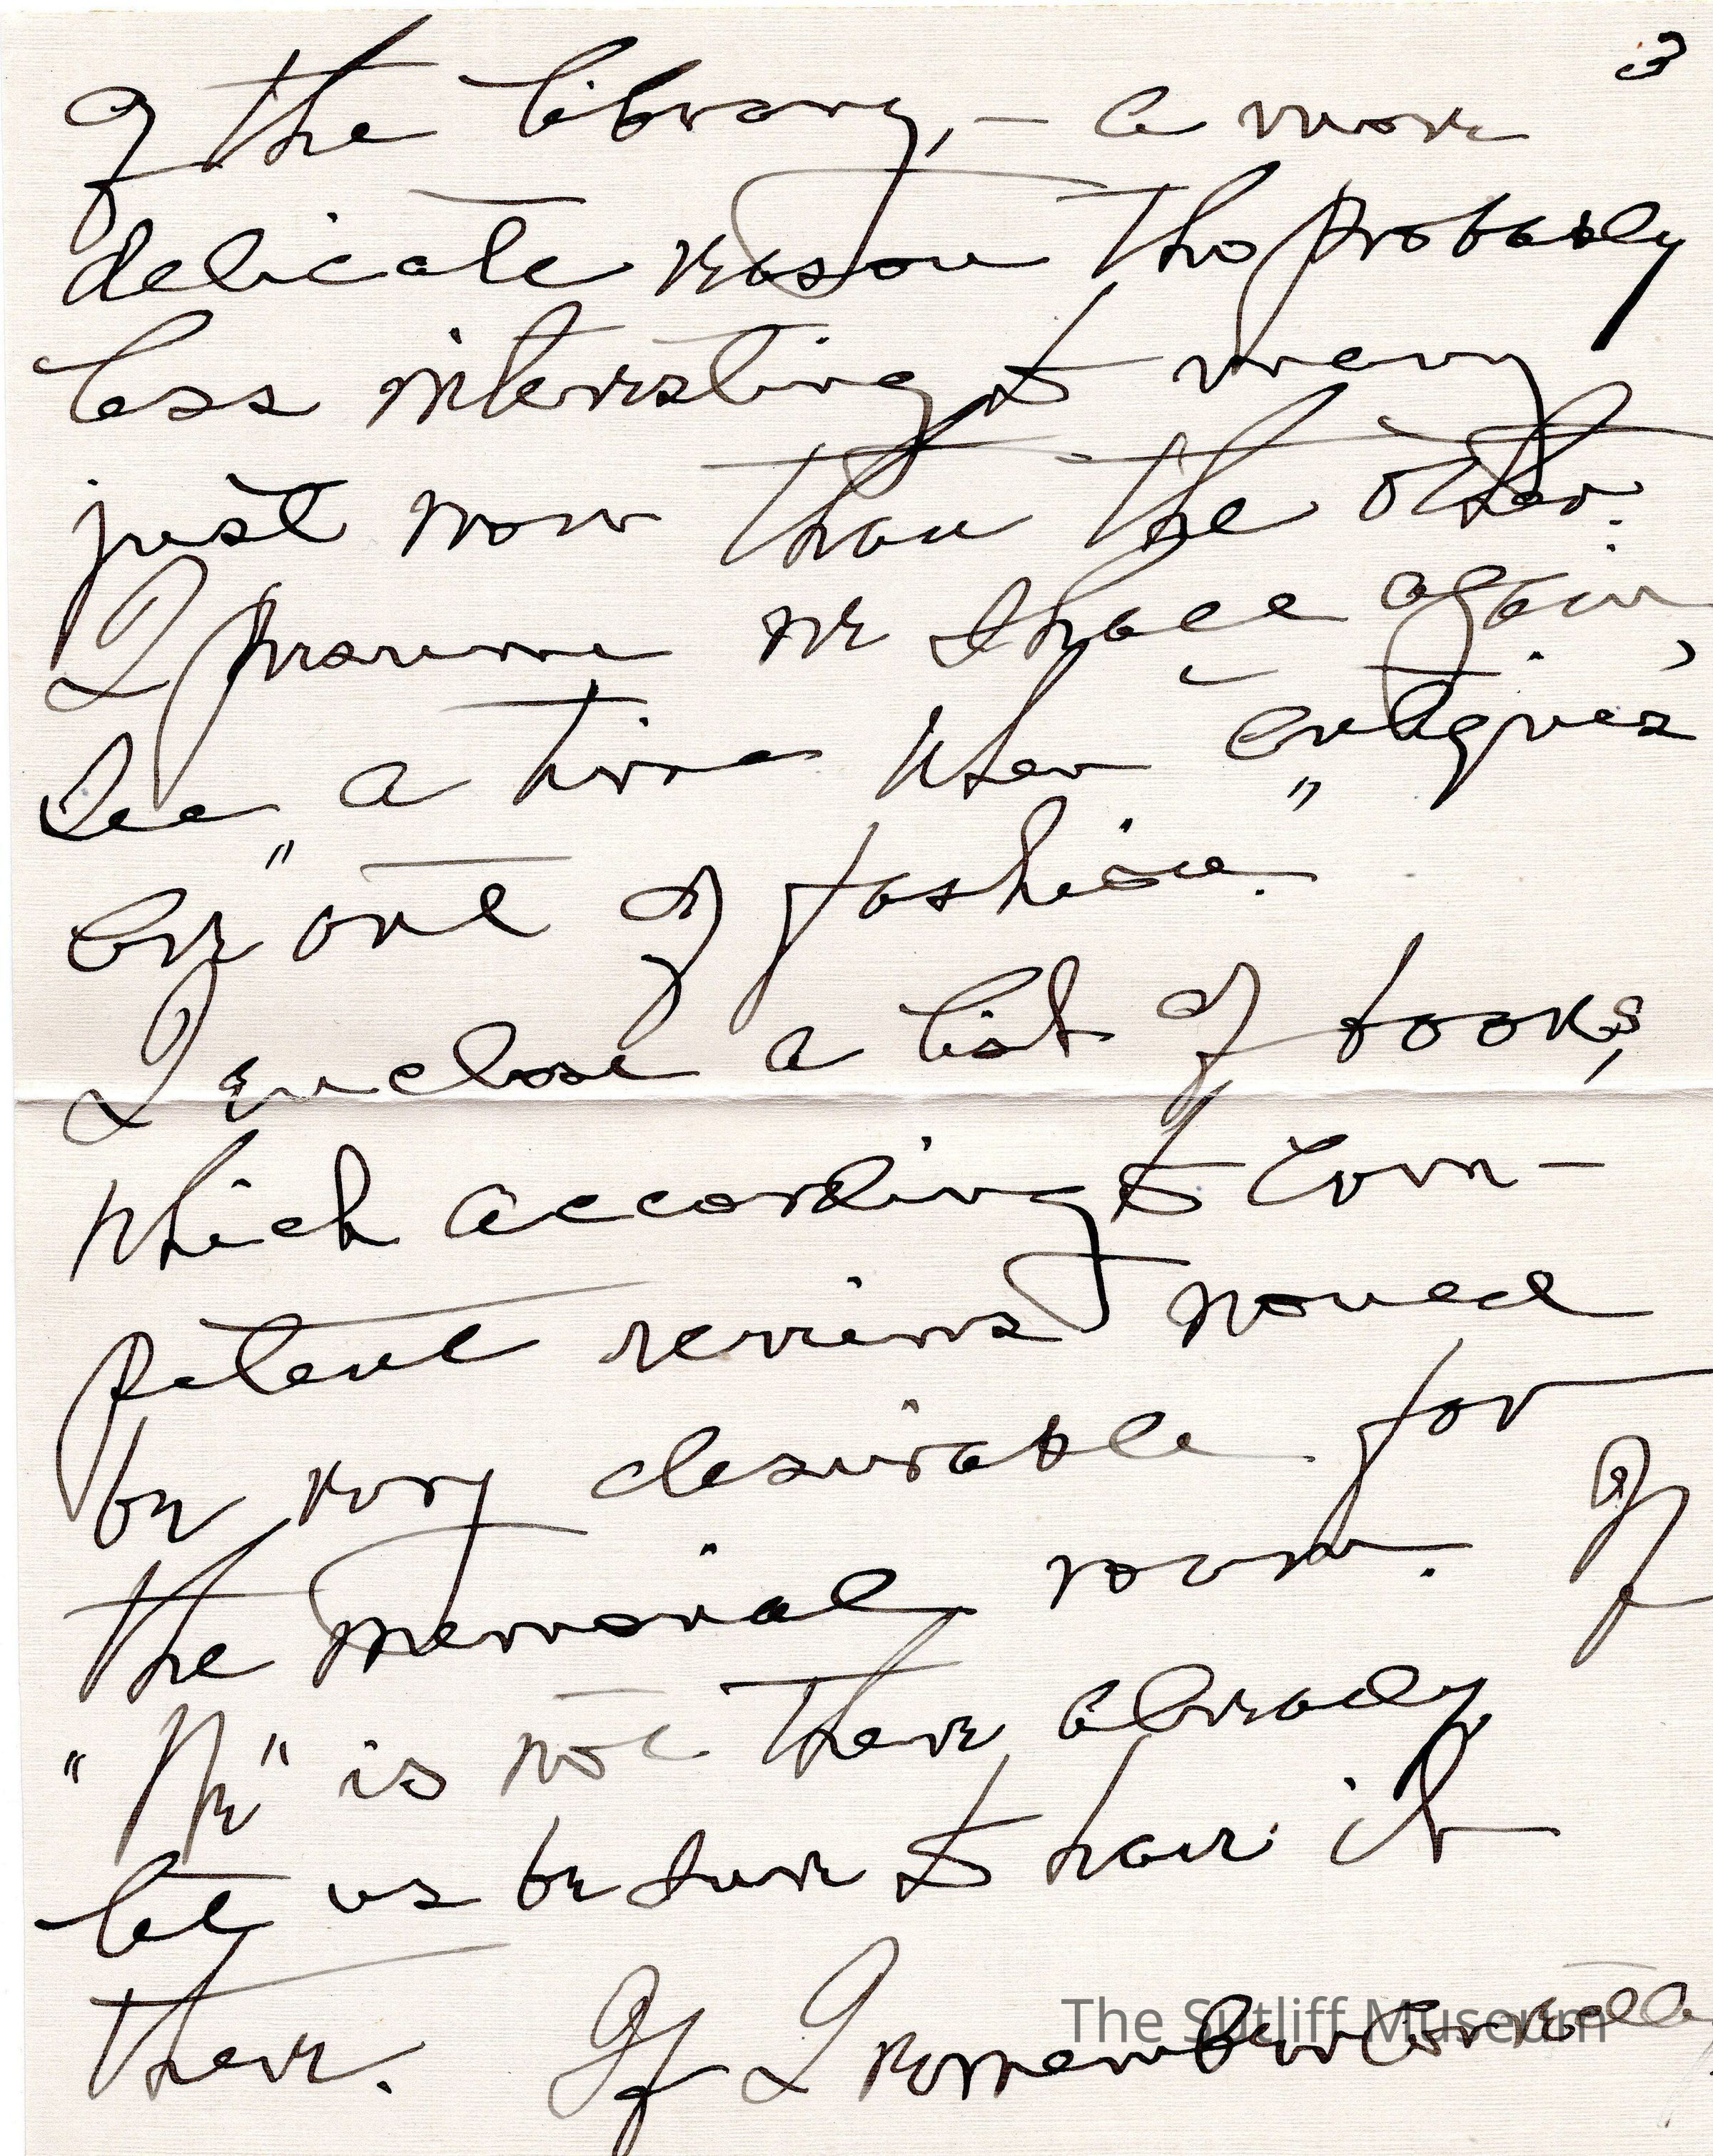 3
of the library, – a more
delicate reason tho probably
less interesting to many
just now than the other.
I presume we shall again
see a time when "antiques"
are "out of fashion".
I enclose a list of books,
which according to com-
petent reviews would
be very desirable for
the memorial room. If
"We" is not there already
let us be sure to have it
there. If I remember correctly
The Sutliff Museum